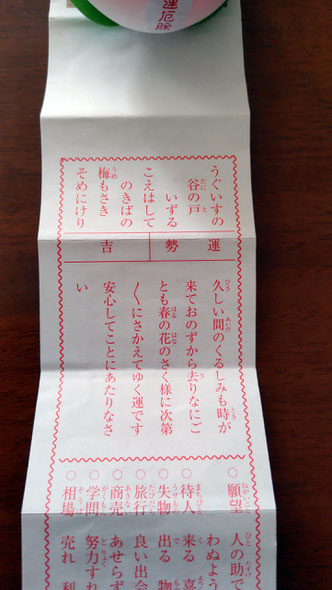 運厄除
うぐいすの
谷の戸
いずる
こえはして
のきばの
梅もさき
そめにけり
運勢
吉
久しい間のくるしみも時が
来ておのずから去りなにご
とも春の花のさく様に次第
〳〵にさかえてゆく運です
安心してことにあたりなさ
い
○願望 人の助で
わぬよう
○待人 来る 喜
○失物 出る 物
○旅行 良い出会
○商売 あせらず
○学問 努力すれ
○相場 売れ 利